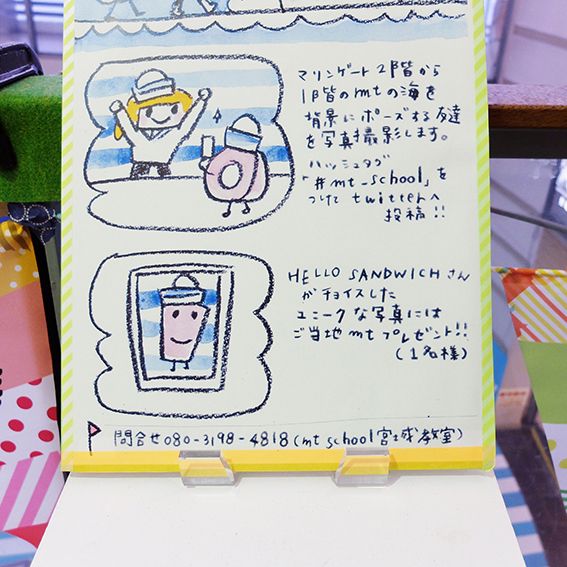 マリンゲート2階から
1階のmtの海を
背景にポーズする友達
を写真撮影します。
ハッシュタグ
「#mt_school」を
つけてtwitterへ
投稿!!
HELLO SANDWICHさん
がチョイスした
ユニークな写真には
ご当地mtプレゼント!!
(1名様)
問合せ080-3198-4818(mt school宮城教室)